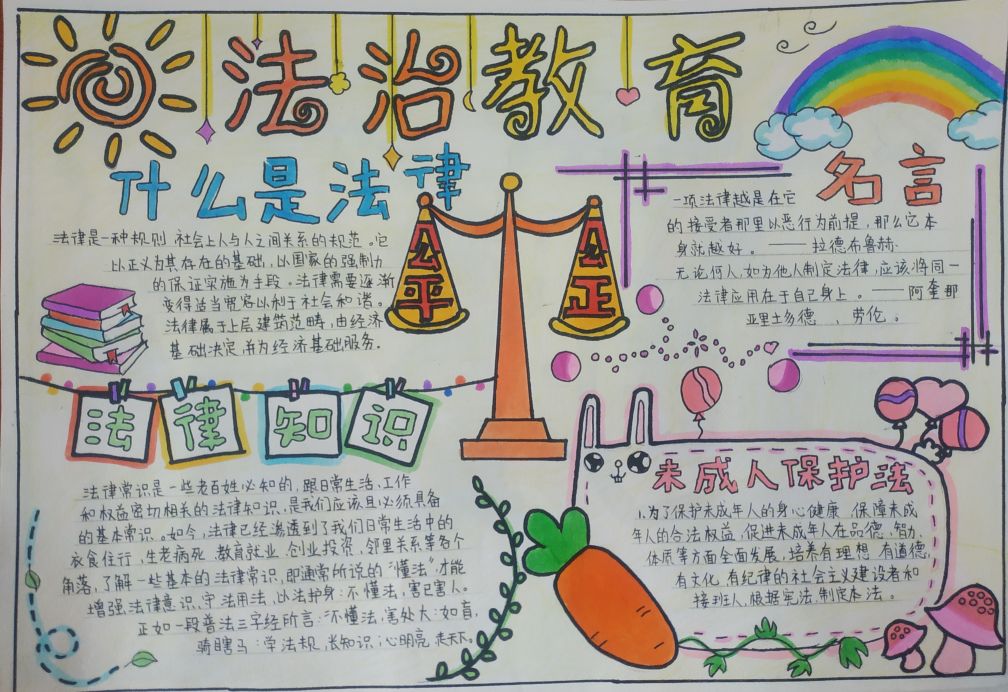 法治教育
什么是法律
法律是一种规则 社会上人与人之间关系的规范。它
以正义为其存在的基础，以国家的强制力
的保证实施为手段。法律需要逐渐
变得适当宽容以利于社会和谐。
法律属于上层建筑范畴，由经济
基础决定，并为经济基础服务。
公平
公正
名言
一项法律越是在它
的接受者那里以恶行为前提，那么它本
身就越好。——拉德布鲁赫
无论何人，如为他人制定法律，应该将同一
法律应用在于自己身上。——阿奎那
亚里士多德 、劳伦。
法律知识
法律常识是一些老百姓必知的，跟日常生活、工作
和权益密切相关的法律知识，是我们应该且必须具备
的基本常识。如今，法律已经渗透到了我们日常生活中的
衣食住行，生老病死 教育就业，创业投资，邻里关系等各个
角落，了解一些基本的法律常识，即通常所说的“懂法”才能
增强法律意识，守法用法，以法护身：不懂法，害己害人。
正如一段普法三字经所言：“不懂法，害处大：如盲，
骑瞎马：学法规，长知识；心明亮，走天下。
未成人保护法
1.为了保护未成年人的身心健康 保障未成
年人的合法权益，促进未成年人在品德，智力、
体质等方面全面发展，培养有理想 有道德，
有文化 有纪律的社会主义建设者和
接班人，根据宪法，制定本法。